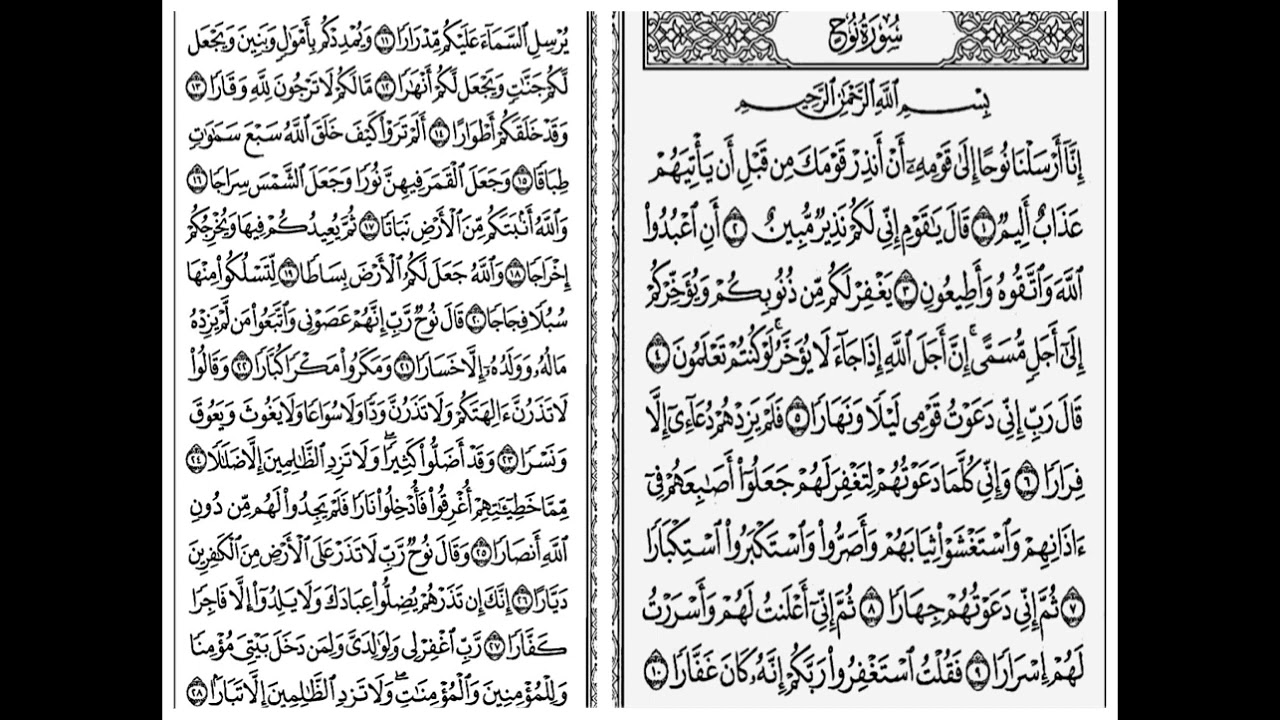 سُورَةُ نُوحٍ
بِسْمِ ٱللَّهِ ٱلرَّحْمَٰنِ ٱلرَّحِيمِ
إِنَّآ أَرْسَلْنَا نُوحًا إِلَىٰ قَوْمِهِۦٓ أَنْ أَنذِرْ قَوْمَكَ مِن قَبْلِ أَن يَأْتِيَهُمْ
عَذَابٌ أَلِيمٌ ١ قَالَ يَٰقَوْمِ إِنِّى لَكُمْ نَذِيرٌ مُّبِينٌ ٢ أَنِ ٱعْبُدُوا۟
ٱللَّهَ وَٱتَّقُوهُ وَأَطِيعُونِ ٣ يَغْفِرْ لَكُم مِّن ذُنُوبِكُمْ وَيُؤَخِّرْكُمْ
إِلَىٰٓ أَجَلٍ مُّسَمًّى ۚ إِنَّ أَجَلَ ٱللَّهِ إِذَا جَآءَ لَا يُؤَخَّرُ ۖ لَوْ كُنتُمْ تَعْلَمُونَ ٤
قَالَ رَبِّ إِنِّى دَعَوْتُ قَوْمِى لَيْلًا وَنَهَارًا ٥ فَلَمْ يَزِدْهُمْ دُعَآءِىٓ إِلَّا
فِرَارًا ٦ وَإِنِّى كُلَّمَا دَعَوْتُهُمْ لِتَغْفِرَ لَهُمْ جَعَلُوٓا۟ أَصَٰبِعَهُمْ فِىٓ
ءَاذَانِهِمْ وَٱسْتَغْشَوْا۟ ثِيَابَهُمْ وَأَصَرُّوا۟ وَٱسْتَكْبَرُوا۟ ٱسْتِكْبَارًا
٧ ثُمَّ إِنِّى دَعَوْتُهُمْ جِهَارًا ٨ ثُمَّ إِنِّىٓ أَعْلَنتُ لَهُمْ وَأَسْرَرْتُ
لَهُمْ إِسْرَارًا ٩ فَقُلْتُ ٱسْتَغْفِرُوا۟ رَبَّكُمْ إِنَّهُۥ كَانَ غَفَّارًا ١٠
يُرْسِلِ ٱلسَّمَآءَ عَلَيْكُم مِّدْرَارًا ١١ وَيُمْدِدْكُم بِأَمْوَٰلٍ وَبَنِينَ وَيَجْعَل
لَّكُمْ جَنَّٰتٍ وَيَجْعَل لَّكُمْ أَنْهَٰرًا ١٢ مَّا لَكُمْ لَا تَرْجُونَ لِلَّهِ وَقَارًا ١٣
وَقَدْ خَلَقَكُمْ أَطْوَارًا ١٤ أَلَمْ تَرَوْا۟ كَيْفَ خَلَقَ ٱللَّهُ سَبْعَ سَمَٰوَٰتٍ
طِبَاقًا ١٥ وَجَعَلَ ٱلْقَمَرَ فِيهِنَّ نُورًا وَجَعَلَ ٱلشَّمْسَ سِرَاجًا ١٦
وَٱللَّهُ أَنۢبَتَكُم مِّنَ ٱلْأَرْضِ نَبَاتًا ١٧ ثُمَّ يُعِيدُكُمْ فِيهَا وَيُخْرِجُكُمْ
إِخْرَاجًا ١٨ وَٱللَّهُ جَعَلَ لَكُمُ ٱلْأَرْضَ بِسَاطًا ١٩ لِّتَسْلُكُوا۟ مِنْهَا
سُبُلًا فِجَاجًا ٢٠ قَالَ نُوحٌ رَّبِّ إِنَّهُمْ عَصَوْنِى وَٱتَّبَعُوا۟ مَن لَّمْ يَزِدْهُ
مَالُهُۥ وَوَلَدُهُۥٓ إِلَّا خَسَارًا ٢١ وَمَكَرُوا۟ مَكْرًا كُبَّارًا ٢٢ وَقَالُوا۟
لَا تَذَرُنَّ ءَالِهَتَكُمْ وَلَا تَذَرُنَّ وَدًّا وَلَا سُوَاعًا وَلَا يَغُوثَ وَيَعُوقَ
وَنَسْرًا ٢٣ وَقَدْ أَضَلُّوا۟ كَثِيرًا ۖ وَلَا تَزِدِ ٱلظَّٰلِمِينَ إِلَّا ضَلَٰلًا ٢٤
مِّمَّا خَطِيٓـَٰٔتِهِمْ أُغْرِقُوا۟ فَأُدْخِلُوا۟ نَارًا فَلَمْ يَجِدُوا۟ لَهُم مِّن دُونِ
ٱللَّهِ أَنصَارًا ٢٥ وَقَالَ نُوحٌ رَّبِّ لَا تَذَرْ عَلَى ٱلْأَرْضِ مِنَ ٱلْكَٰفِرِينَ
دَيَّارًا ٢٦ إِنَّكَ إِن تَذَرْهُمْ يُضِلُّوا۟ عِبَادَكَ وَلَا يَلِدُوٓا۟ إِلَّا فَاجِرًا
كَفَّارًا ٢٧ رَّبِّ ٱغْفِرْ لِى وَلِوَٰلِدَىَّ وَلِمَن دَخَلَ بَيْتِىَ مُؤْمِنًا
وَلِلْمُؤْمِنِينَ وَٱلْمُؤْمِنَٰتِ ۖ وَلَا تَزِدِ ٱلظَّٰلِمِينَ إِلَّا تَبَارًۢا ٢٨